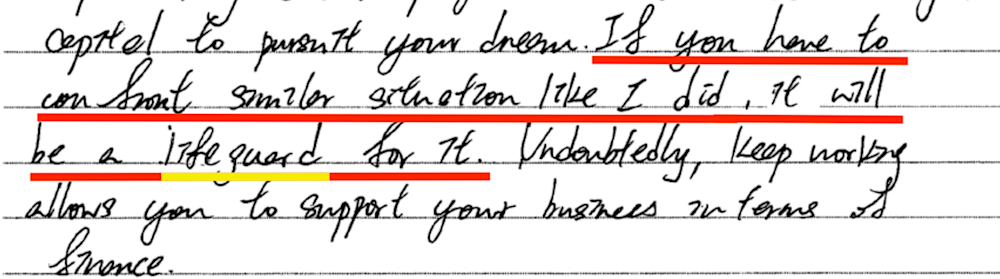 capital to pursuit your dream. If you have to
confront similar situation like I did, it will
be a lifeguard for it. Undoubtedly, keep working
allows you to support your business in terms of
finance.